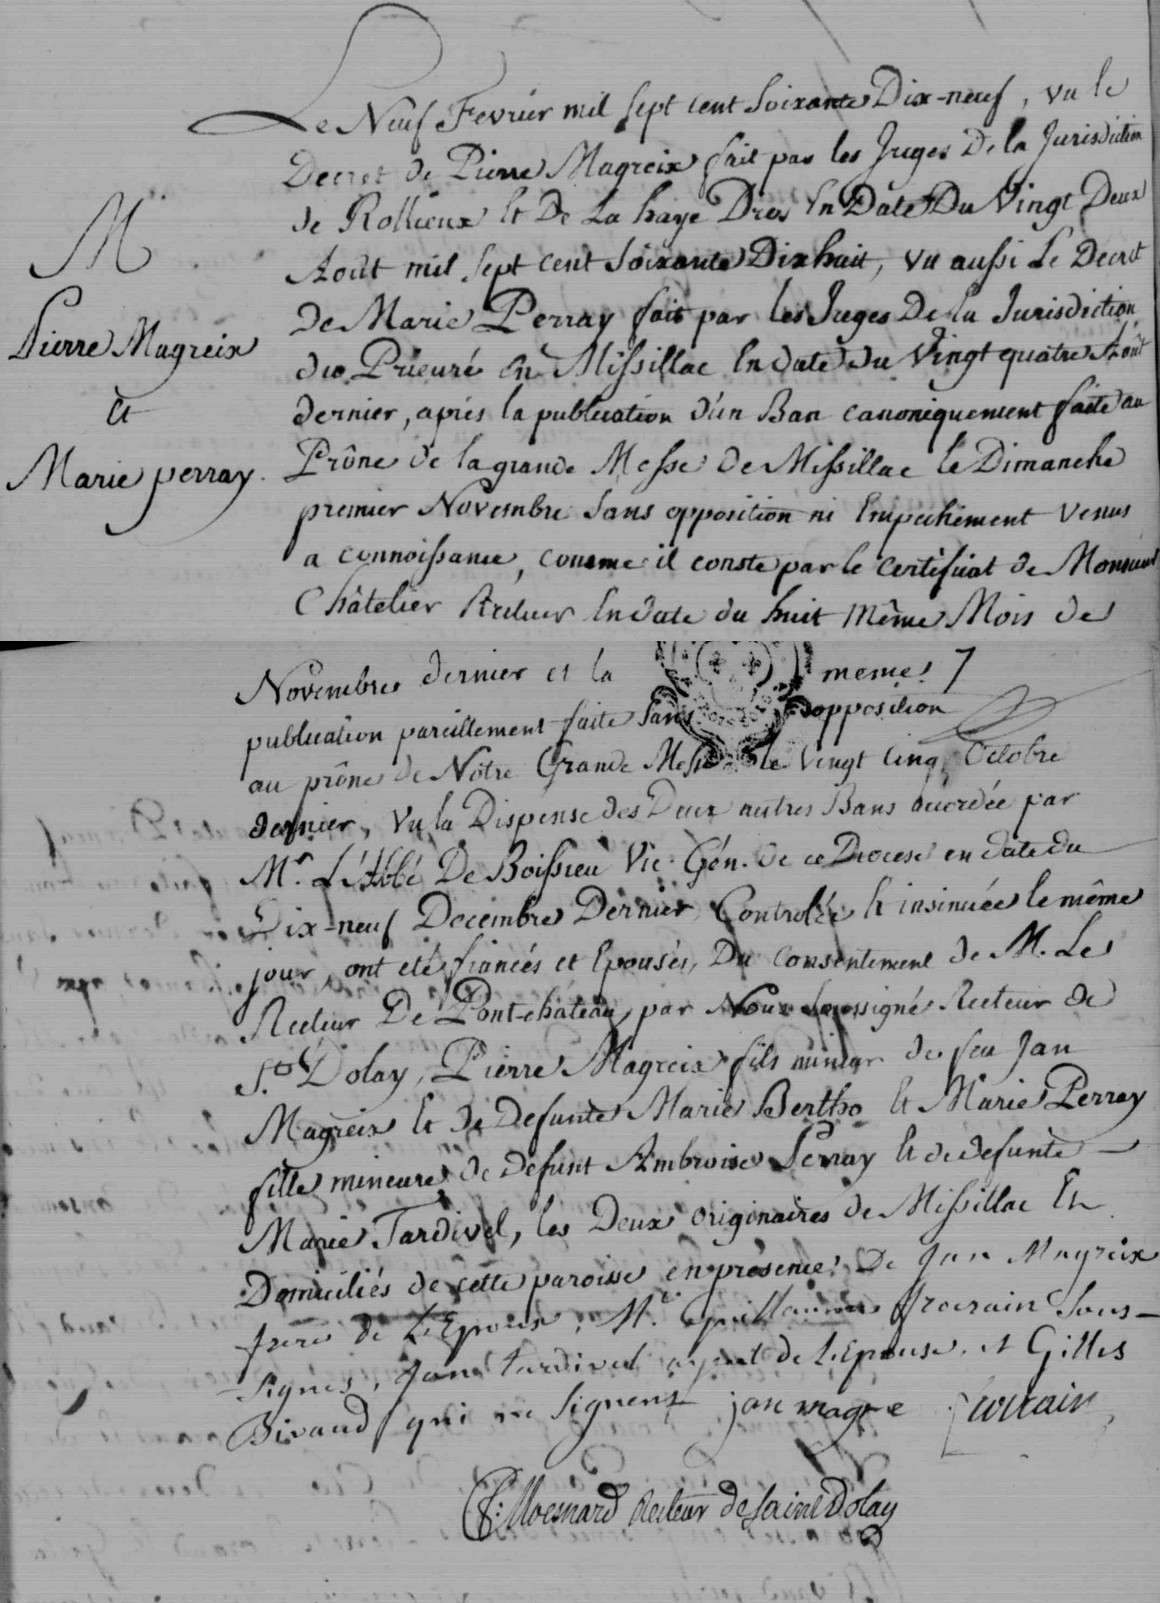 M
Pierre Magreix
et
Marie perray.
Le Neuf Fevrier mil sept cent soixante Dix-neuf, vu le
Decret de Pierre Magreix fait par les Juges De la Jurisdiction
de Rollieux et De La haye Dres En Date Du Vingt Deux
Août mil sept cent soixante Dixhuit, vu aussi Le Decret
de Marie Perray fait par les Juges De la Jurisdiction
du Prieuré en Missillac En date du Vingt quatre Août
dernier, après la publication d'un Ban canoniquement faite au
Prône de la grande Messe de Missillac le Dimanche
premier Novembre sans opposition ni Empechement venus
a connoissance, comme il conste par le certificat de Monsieur
Châtelier Recteur En date du huit même Mois de
Novembre dernier et la meme 7
publication pareillement faite sans opposition
au prône de Nôtre Grande Messe le Vingt Cinq Octobre
dernier, Vu la Dispense des Deux autres Bans accordée par
Mr. L'Abbé De Boissieu Vic. Gén. de ce Diocese en date du
Dix-neuf Decembre Dernier Controlée & insinuée le même
jour, ont eté fiancés et Epousés, Du consentement de M. Le
Recteur De Pont-château, par Nous soussigné Recteur de
St. Dolay, Pierre Magreix fils mineur de feu Jan
Magreix Et de Defunte Marie Bertho Et Marie Perray
fille mineure de Defunt Ambroise Perray Et de defunte
Marie Tardivel, les Deux originaires de Missillac Et
Domiciliés de cette paroisse en présence De Jan Magreix
frere de L'Epoux, Me. Guillaume sous-
signés, Jan tardivel ayeul de L'Epouse, et Gilles
Bivaud qui ne signent jan magre
P: Moesnard Recteur de saint Dolay